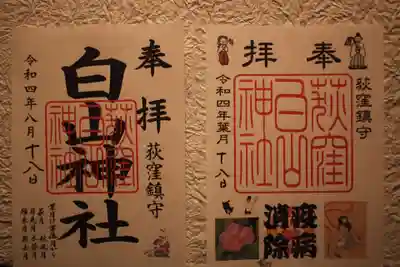 奉拝
荻窪鎮守
白山神社
荻窪
白山
神社
令和四年八月十八日
奉拝
荻窪鎮守
荻窪
白山
神社
令和四年葉月十八日
疫病
消除